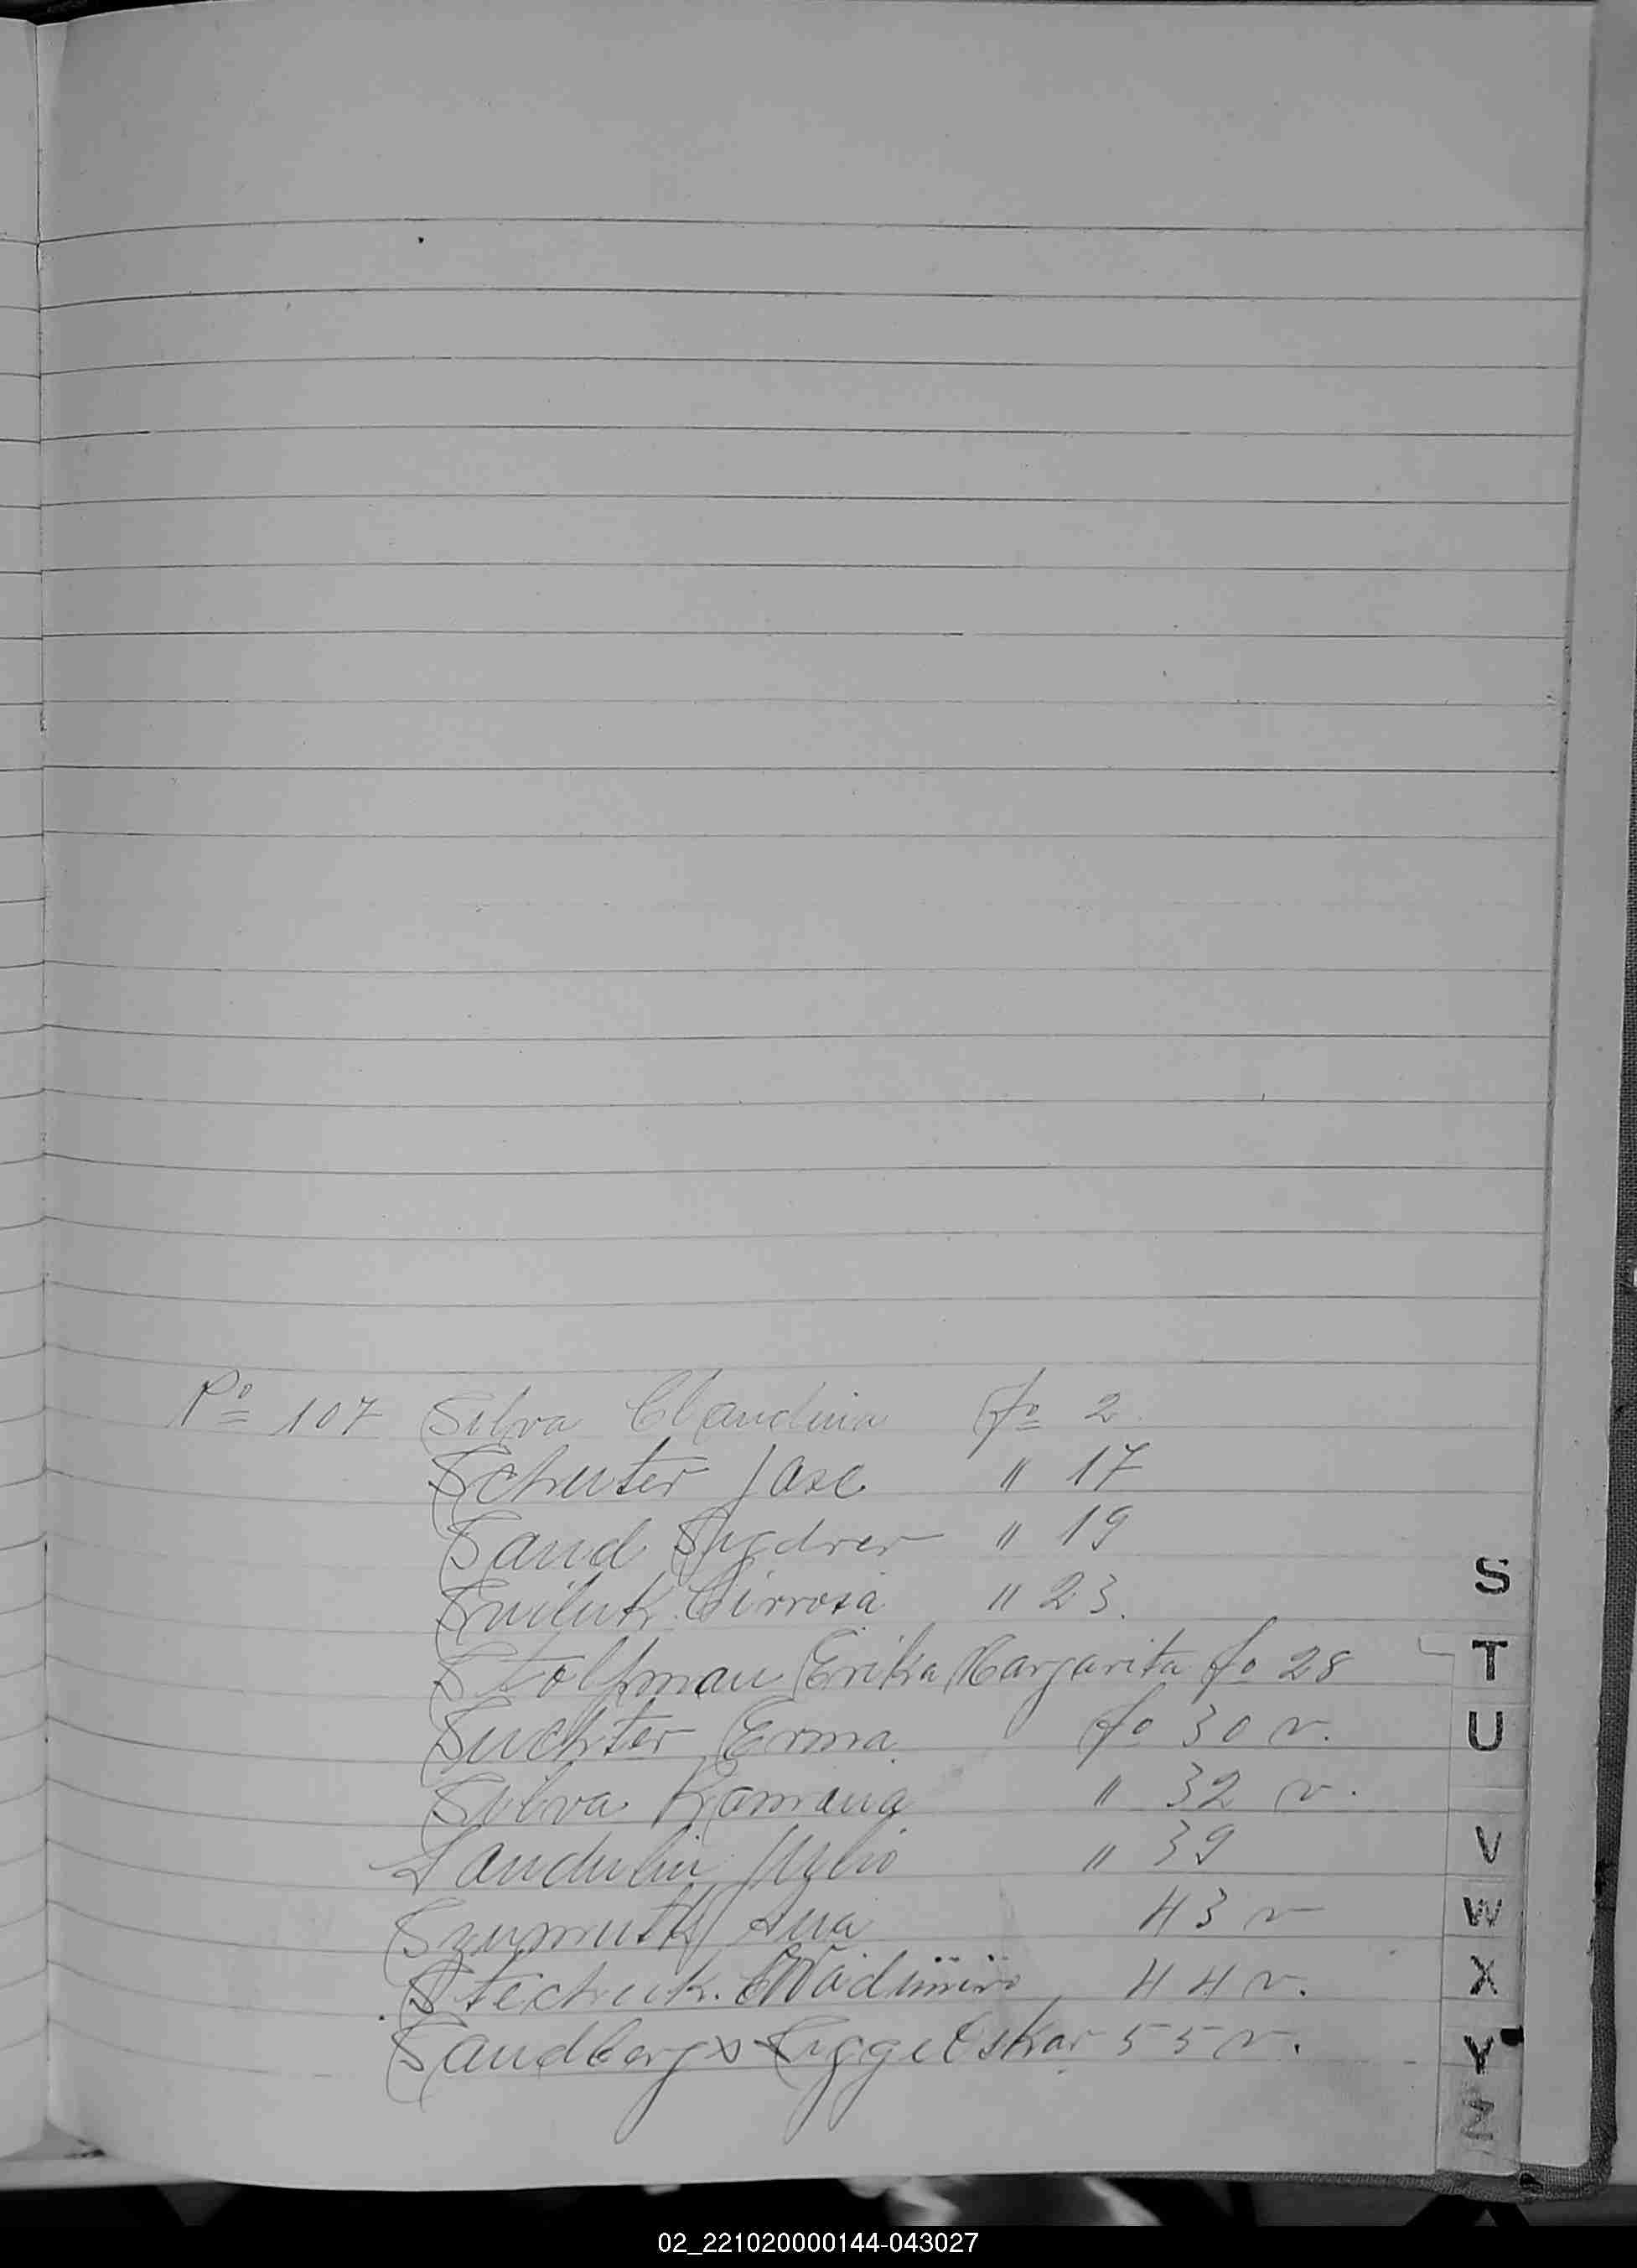 Pº 107 Silva Claudina fº 2
Schuter Jose " 17
Sand Sygdrer " 19
Smiluk Cirrosa " 23.
Stolfman Erika Margarita fo 28
Suchter Erma fo 30 v.
Silva Ramona " 32 v.
Sandulin Julio " 39
Szumuth Ana 43 v
Stechuk. Wadimiro 44 v.
Sandberg Eskar 55 v.
S
T
U
V
W
X
Y
Z
02_221020000144-043027